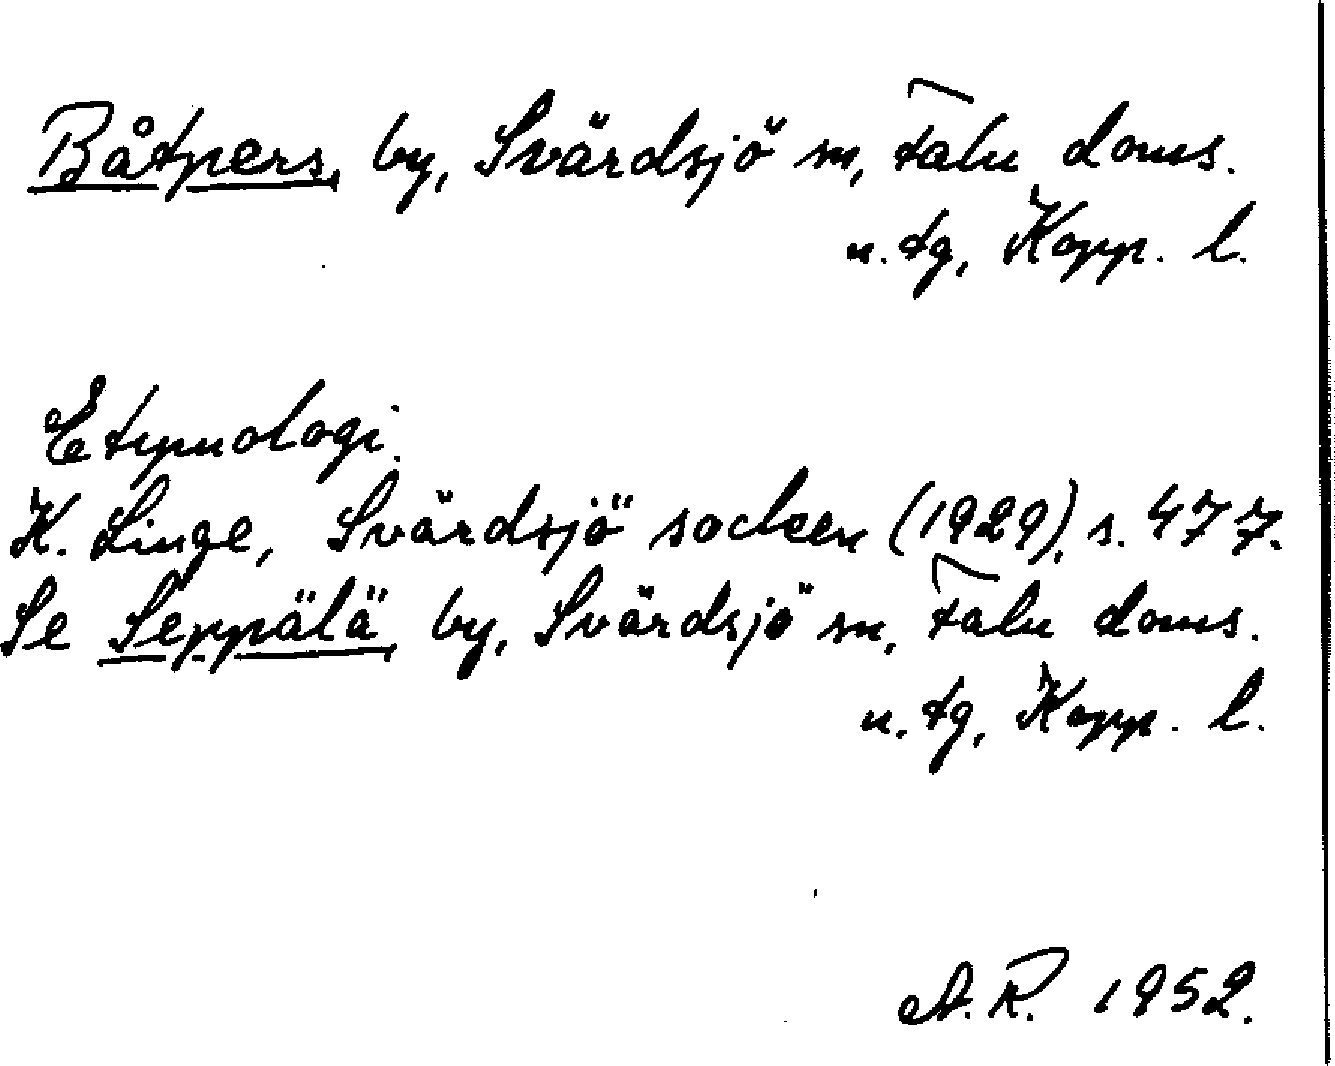 Båtpers, by, Svärdsjö sn, Falu doms.
n. tg, Kopp. l.
Etymologi.
K. Linge, Svärdsjö socken (1929), s. 477.
Se Seppälä, by, Svärdsjö sn, Falu doms.
n. tg, Kopp. l.
A. R. 1952.